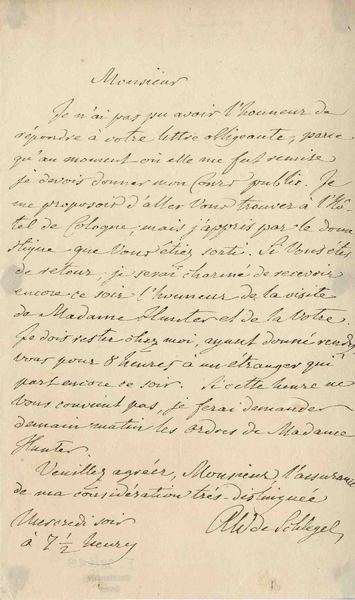 Monsieur
Je n'ai pas pu avoir l'honneur de
répondre à votre lettre obligeante, parce
qu'au moment où elle me fut remise
je devois donner mon Cours public. Je
me proposois d'aller Vous trouver à l'Hô-
tel de Cologne, mais j'appris par le dome-
stique que Vous étiez sorti. Si Vous êtes
de retour, je serai charmé de recevoir
encore ce soir l'honneur de la visite
de Madame Hunter et de la Votre.
Je dois rester chez moi, ayant donné rendez
vous pour 8 heures à un étranger qui
part encore ce soir. Si cette heure ne
Vous convient pas, je ferai demander
demain matin les ordres de Madame
Hunter.
Veuillez agréer, Monsieur l'assurance
de ma considération très-distinguée
Mercredi soir
à 7 ½ heures
AW de Schlegel